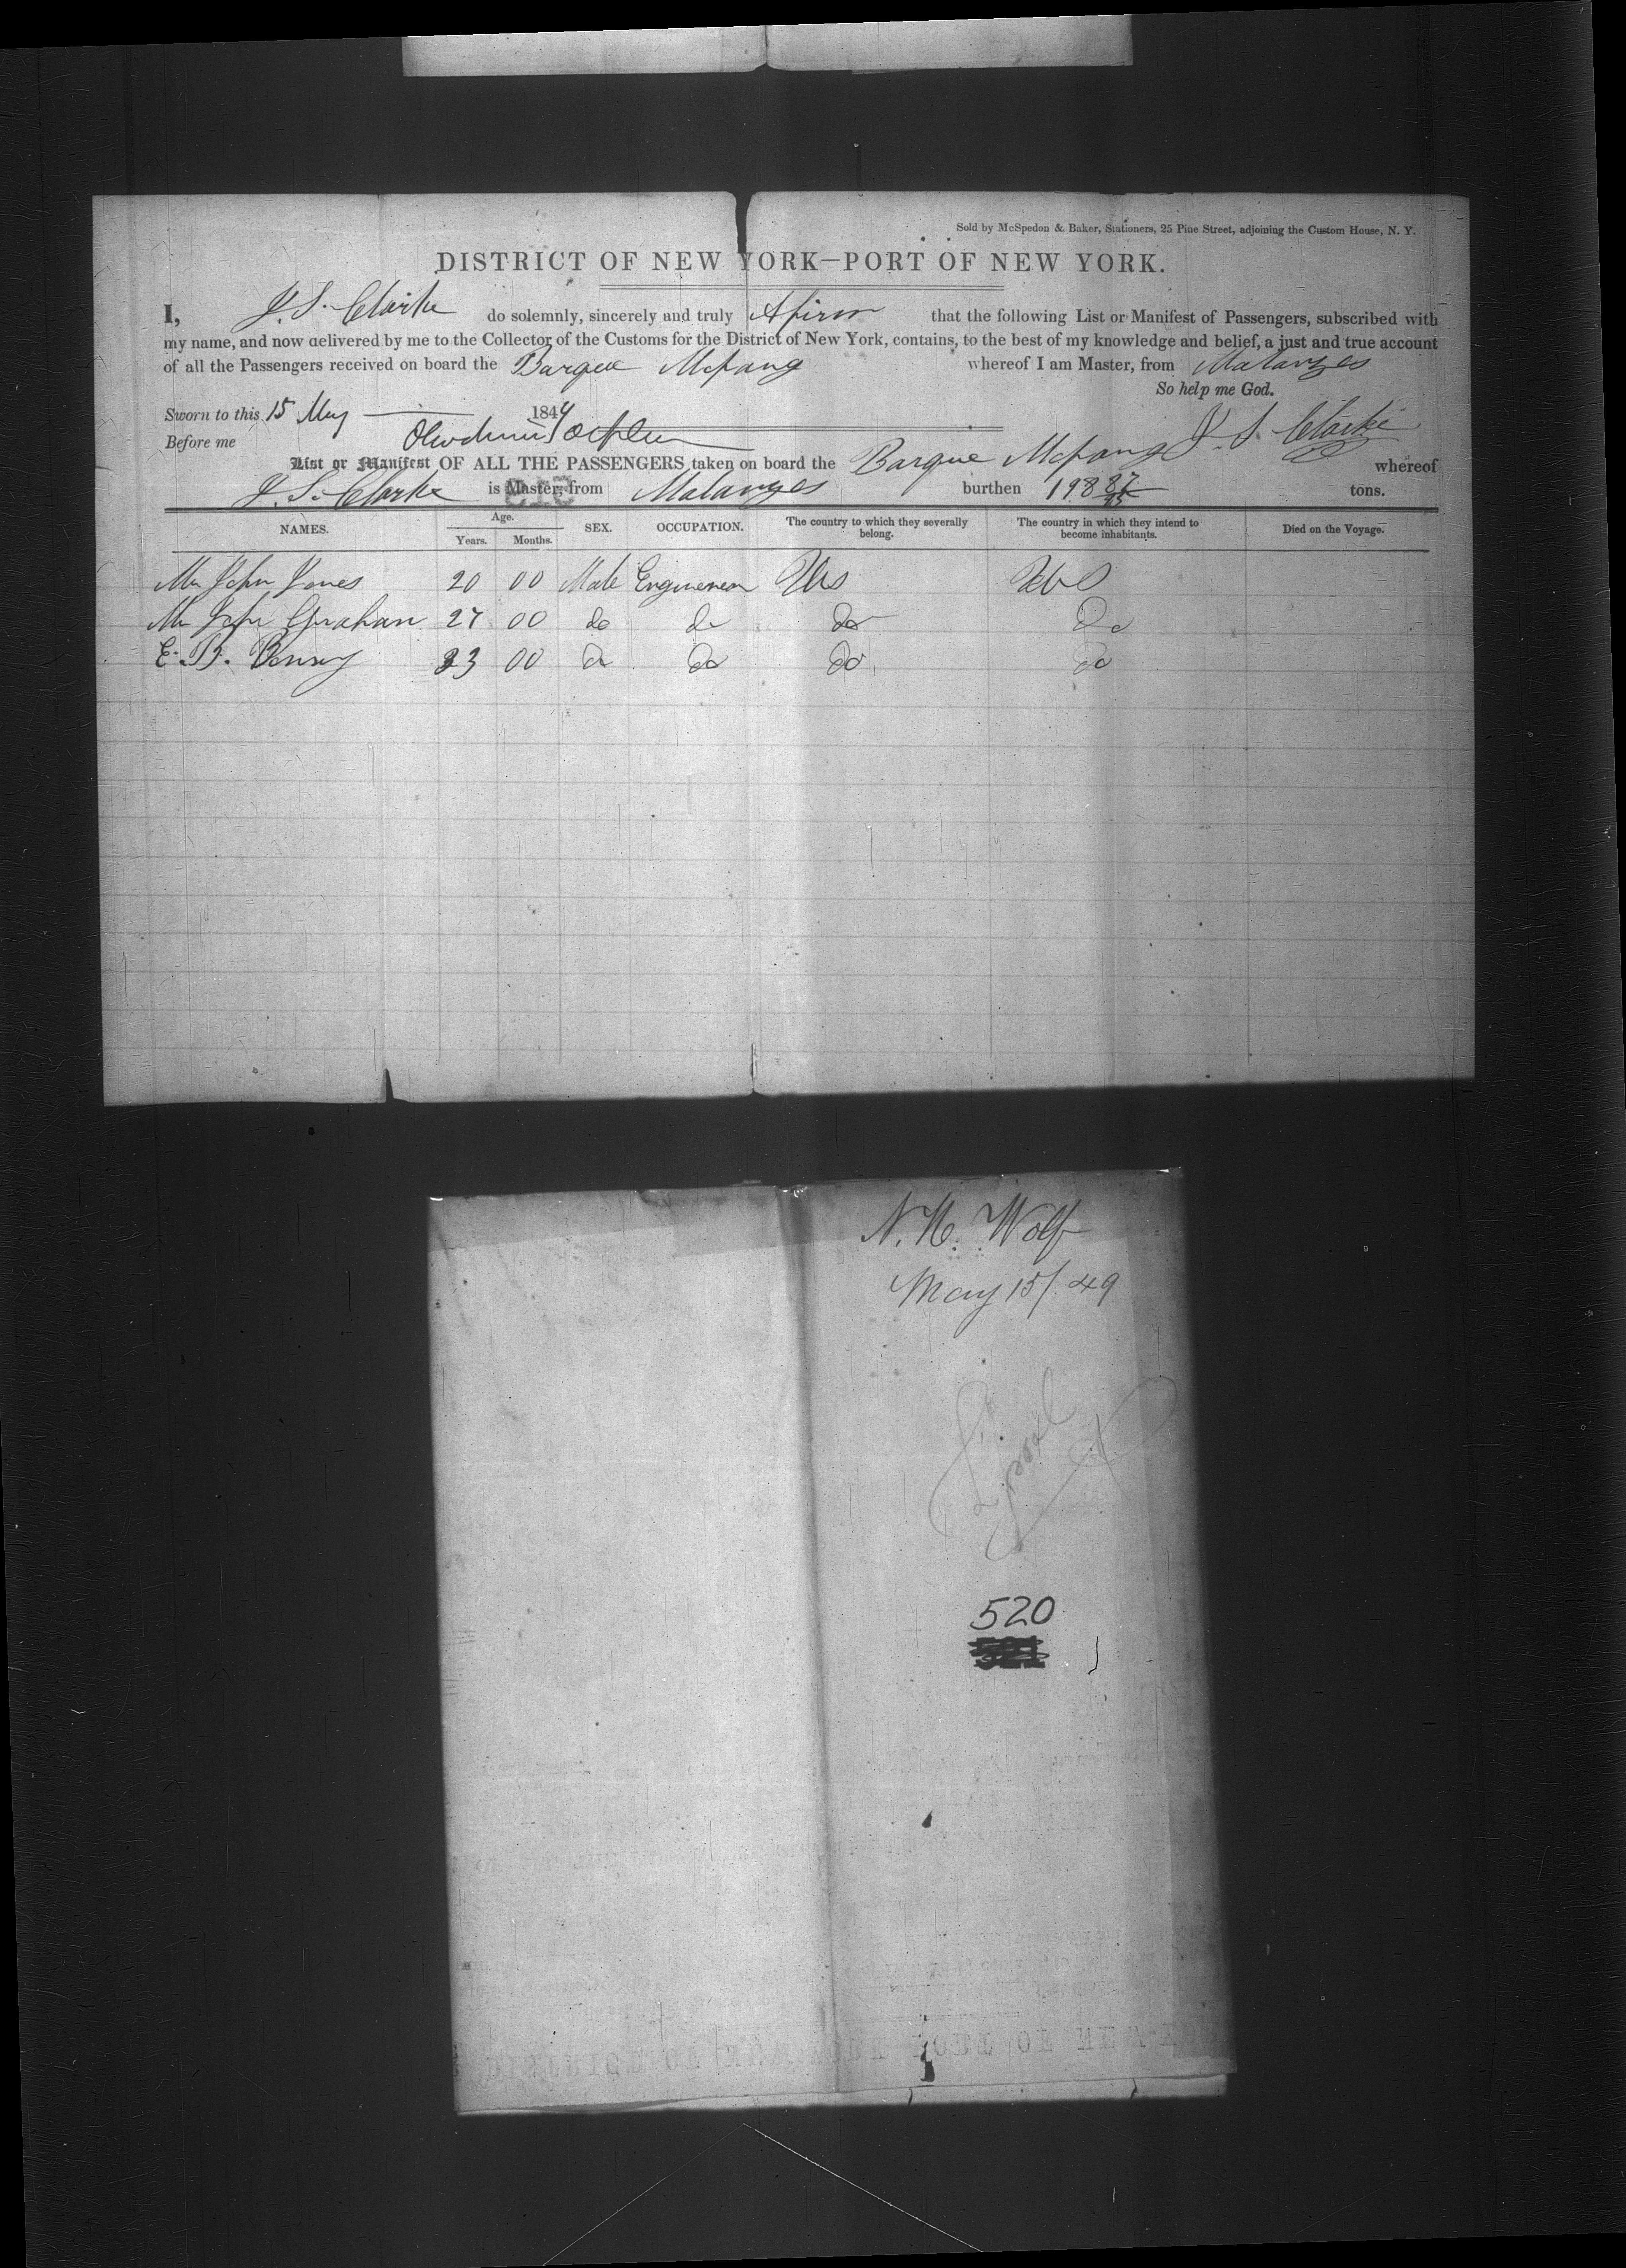 Sold by McSpedon & Baker, Stationers, 25 Pine Street, adjoining the Custom House, N. Y.
DISTRICT OF NEW YORK—PORT OF NEW YORK.
I, J. S. Clarke do solemnly, sincerely and truly Afirm that the following List or Manifest of Passengers, subscribed with
my name, and now delivered by me to the Collector of the Customs for the District of New York, contains, to the best of my knowledge and belief, a just and true account
of all the Passengers received on board the Barque whereof I am Master, from Matanzes
So help me God.
Sworn to this 15 May 184
Before me
J. S. Clarke
List or Manifest OF ALL THE PASSENGERS taken on board the Barque whereof
J. S. Clarke is Master, from Matanzes burthen 198 87/95 tons.
NAMES. Age. Years. Months. SEX. OCCUPATION. The country to which they severally belong. The country in which they intend to become inhabitants. Died on the Voyage.
Mr John Jones 20 00 Male Engineer US US
Mr John Graham 27 00 do do do do
E. B. 33 00 do do do do
N. H. Wolf
May 15/49
520
521
DISTRICT OF NEW YORK—PORT OF NEW YORK